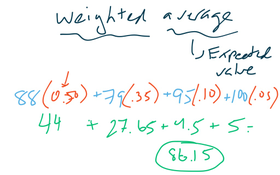 weighted average
↳ Expected value
88(0.50)+79(.35)+95(.10)+100(.05)
44 + 27.65 + 9.5 + 5 =
86.15